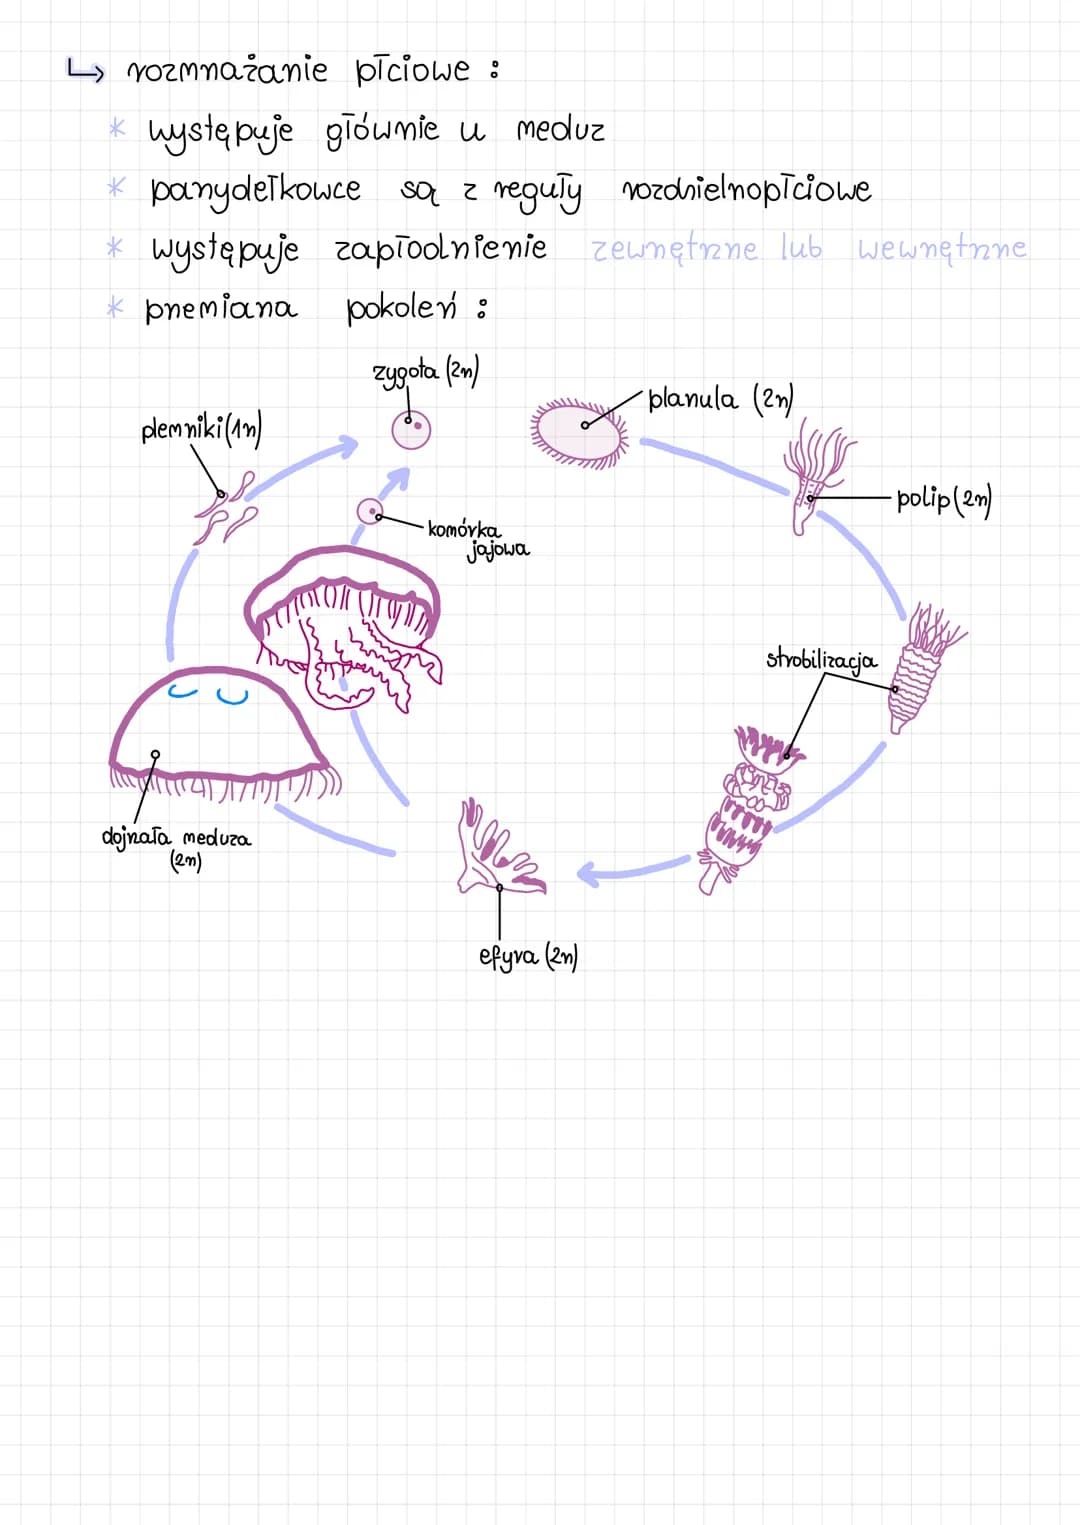 ↳ rozmnażanie płciowe :
* występuje głównie u meduz
* parzydełkowce są z reguły rozdzielnopłciowe
* występuje zapłodnienie zewnętrzne lub wewnętrzne
* przemiana pokoleń :
zygota (2n)
planula (2n)
plemniki (1n)
polip (2n)
komórka
jajowa
strobilizacja
dojrzała meduza
(2n)
efyra (2n)